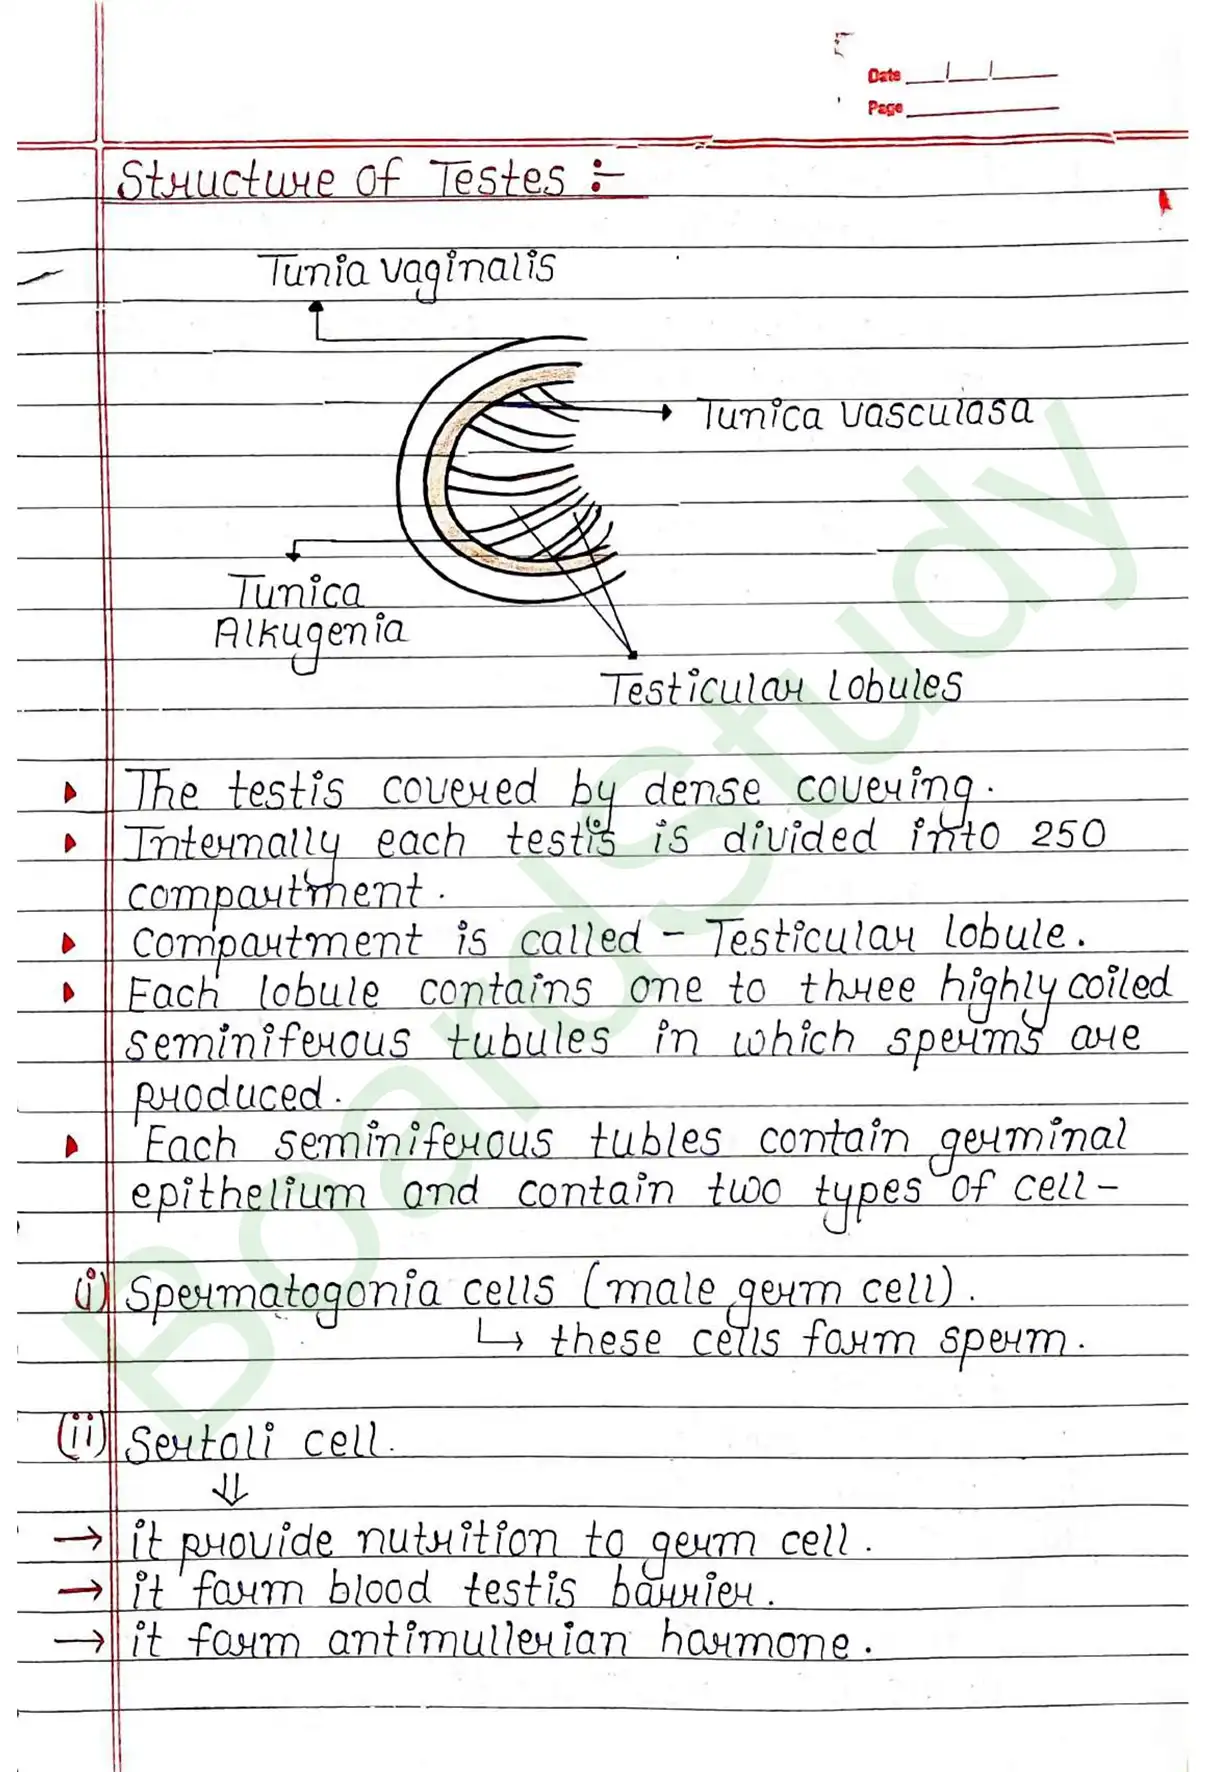 Date
Page
Structure of Testes :-
Tunia vaginalis
Tunica vasculasa
Tunica
Alkugenia
Testicular Lobules
The testis covered by dense covering.
Internally each testis is divided into 250
compartment.
compartment is called - Testicular lobule.
Each lobule contains one to three highly coiled
seminiferous tubules in which sperms are
produced.
Each seminiferous tubles contain germinal
epithelium and contain two types of cell -
(i) Spermatogonia cells (male germ cell).
↳ these cells form sperm.
(ii) Sertoli cell.
⇓
→ it provide nutrition to germ cell.
→ it form blood testis barrier.
→ it form antimullerian harmone.
BoardStudy